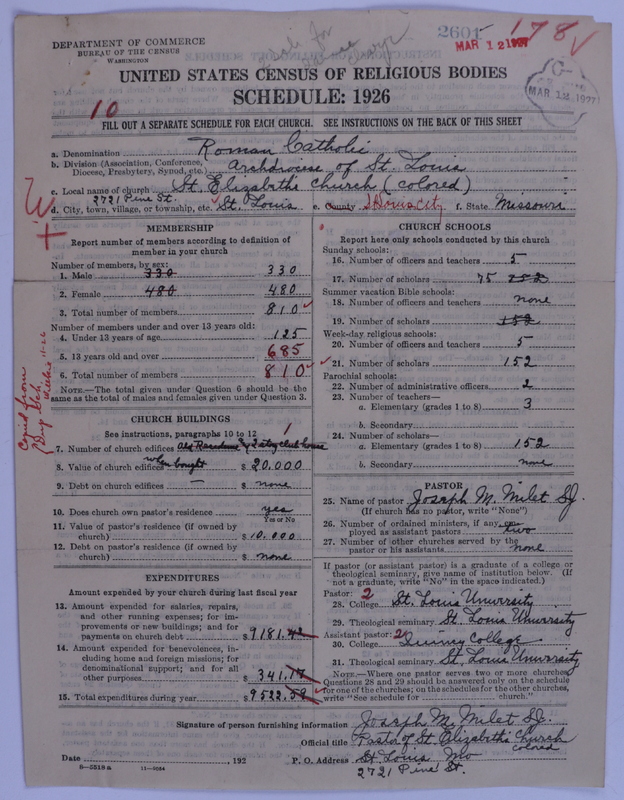 2601
178 ✓
MAR 12 1927
DEPARTMENT OF COMMERCE
BUREAU OF THE CENSUS
WASHINGTON
G
MAR 12 1927
UNITED STATES CENSUS OF RELIGIOUS BODIES
SCHEDULE: 1926
10
FILL OUT A SEPARATE SCHEDULE FOR EACH CHURCH. SEE INSTRUCTIONS ON THE BACK OF THIS SHEET
a. Denomination Roman Catholic
b. Division (Association, Conference, Diocese, Presbytery, Synod, etc.) Archdiocese of St. Louis
c. Local name of church St. Elizabeths Church (colored)
2721 Pine St.
d. City, town, village, or township, etc. St. Louis e. County St Louis City f. State Missouri
MEMBERSHIP
Report number of members according to definition of member in your church
Number of members, by sex:
1. Male 330 330
2. Female 480 480
3. Total number of members 810 ✓
Number of members under and over 13 years old:
4. Under 13 years of age 125
5. 13 years old and over 685
6. Total number of members 810 ✓
NOTE.—The total given under Question 6 should be the same as the total of males and females given under Question 3.
Copied from
CHURCH BUILDINGS
See instructions, paragraphs 10 to 12
1
7. Number of church edifices Old Residence 2 story club house
when bought
8. Value of church edifices $ 20.000
9. Debt on church edifices — $ none
10. Does church own pastor's residence yes
Yes or No
11. Value of pastor's residence (if owned by church) $ 10.000
12. Debt on pastor's residence (if owned by church) $ none
EXPENDITURES
Amount expended by your church during last fiscal year
13. Amount expended for salaries, repairs, and other running expenses; for improvements or new buildings; and for payments on church debt $ 9181.42
14. Amount expended for benevolences, including home and foreign missions; for denominational support; and for all other purposes $ 341.17
15. Total expenditures during year $ 9522.59 ✓
CHURCH SCHOOLS
Report here only schools conducted by this church
Sunday schools:
16. Number of officers and teachers 5
17. Number of scholars 75 252
Summer vacation Bible schools:
18. Number of officers and teachers none
19. Number of scholars 152
Week-day religious schools:
20. Number of officers and teachers 5
✓ 21. Number of scholars 152
Parochial schools:
22. Number of administrative officers 2
23. Number of teachers—
a. Elementary (grades 1 to 8) 3
b. Secondary
24. Number of scholars—
a. Elementary (grades 1 to 8) 152
b. Secondary none
PASTOR
25. Name of pastor Joseph M. Milet SJ.
(If church has no pastor, write "None")
26. Number of ordained ministers, if any, employed as assistant pastors two
27. Number of other churches served by the pastor or his assistants none
If pastor (or assistant pastor) is a graduate of a college or theological seminary, give name of institution below. (If not a graduate, write "No" in the space indicated.)
Pastor: 2
28. College St. Louis University
29. Theological seminary St. Louis University
Assistant pastor: 2
30. College Quincy College
31. Theological seminary St. Louis University
NOTE.—Where one pastor serves two or more churches, Questions 28 and 29 should be answered only on the schedule for one of the churches; on the schedules for the other churches, write "See schedule for church."
Signature of person furnishing information Joseph M. Milet SJ.
Official title Pastor of St. Elizabeths Church
colored
Date , 192 P. O. Address St. Louis Mo
2721 Pine St.
8—5518a 11—9054